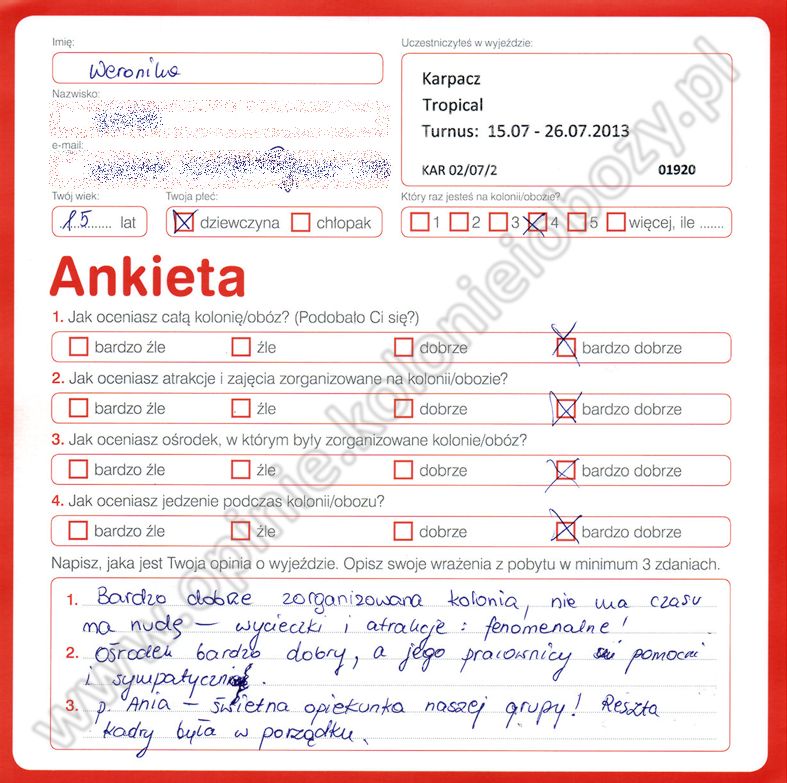 Imię:
Weronika
Uczestniczyłeś w wyjeździe:
Karpacz
Tropical
Turnus: 15.07 - 26.07.2013
KAR 02/07/2 01920
Nazwisko:
e-mail:
Twój wiek: Twoja płeć: Który raz jesteś na kolonii/obozie?
15 lat dziewczyna chłopak 1 2 3 4 5 więcej, ile .......
Ankieta
1. Jak oceniasz całą kolonię/obóz? (Podobało Ci się?)
bardzo źle źle dobrze bardzo dobrze
2. Jak oceniasz atrakcje i zajęcia zorganizowane na kolonii/obozie?
bardzo źle źle dobrze bardzo dobrze
3. Jak oceniasz ośrodek, w którym były zorganizowane kolonie/obóz?
bardzo źle źle dobrze bardzo dobrze
4. Jak oceniasz jedzenie podczas kolonii/obozu?
bardzo źle źle dobrze bardzo dobrze
Napisz, jaka jest Twoja opinia o wyjeździe. Opisz swoje wrażenia z pobytu w minimum 3 zdaniach.
1. Bardzo dobrze zorganizowana kolonia, nie ma czasu
na nudę – wycieczki i atrakcje : fenomenalne!
2. Ośrodek bardzo dobry, a jego pracownicy pomocni
i sympatyczni.
3. p. Ania – świetna opiekunka naszej grupy! Reszta
kadry była w porządku.
www.opinie.kolonieiobozy.pl